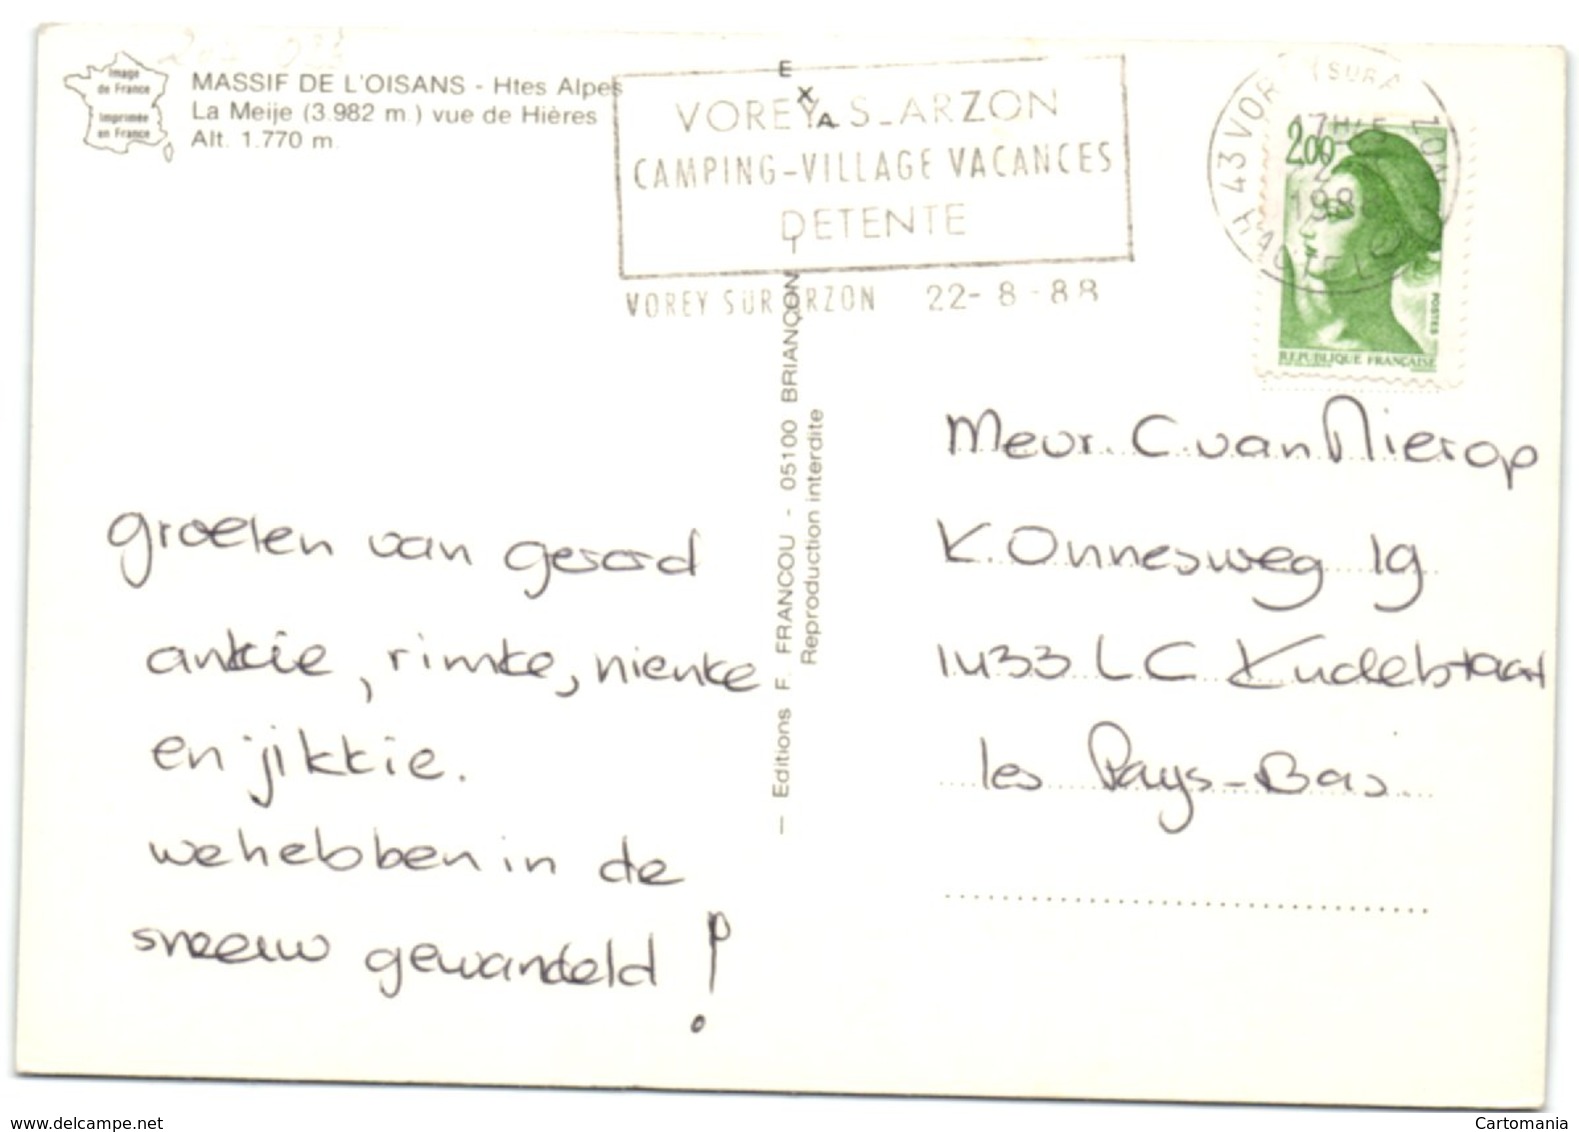 Image
de France
Imprimée
en France
MASSIF DE L'OISANS - Htes Alpes
La Meije (3.982 m.) vue de Hières
Alt. 1.770 m.
VOREY S-ARZON
CAMPING-VILLAGE VACANCES
DETENTE
VOREY SUR ARZON 22-8-88
43 VOREY (SUR ARZON
17H45
1988
2,00
POSTES
REPUBLIQUE FRANÇAISE
EXA
— Editions F. FRANCOU - 05100 BRIANÇON
Reproduction interdite
groeten van gerard
ankie, rimke, nienke
en jikkie.
we hebben in de
sneeuw gewandeld !
Meur. C. van Nierop
K. Onnesweg 19
1433 LC Kudelstaart
les Pays-Bas.
www.delcampe.net
Cartomania